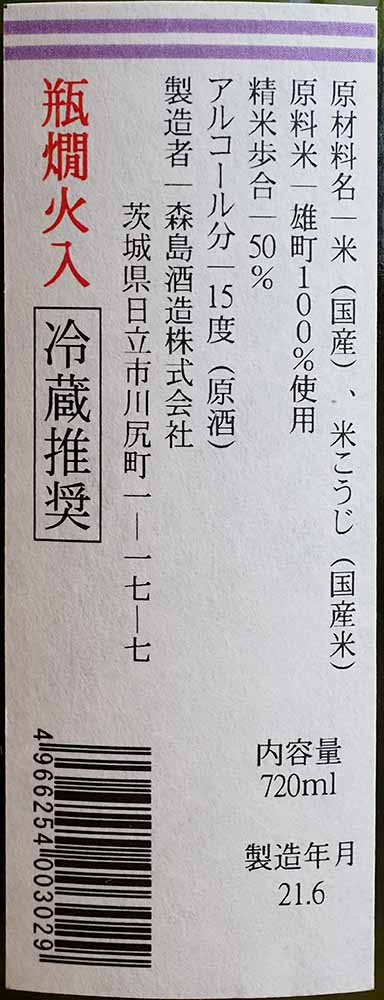 原材料名｜米（国産）、米こうじ（国産米）
原料米｜雄町100%使用
精米歩合｜50%
アルコール分｜15度（原酒）
製造者｜森島酒造株式会社
茨城県日立市川尻町一―一七―七
瓶燗火入
冷蔵推奨
内容量
720ml
製造年月
21.6
4966254003029